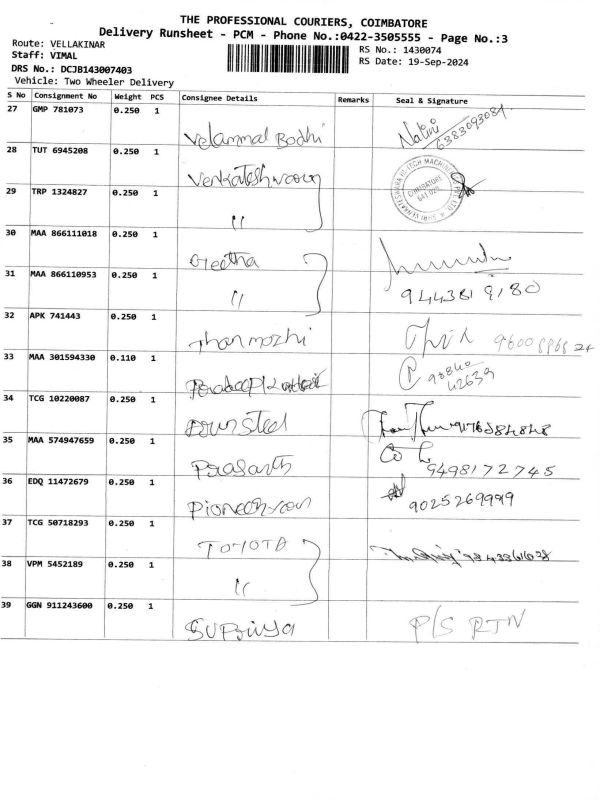 THE PROFESSIONAL COURIERS, COIMBATORE
Delivery Runsheet - PCM - Phone No.:0422-3505555 - Page No.:3
Route: VELLAKINAR
RS No.: 1430074
Staff: VIMAL
RS Date: 19-Sep-2024
DRS No.: DCJB143007403
Vehicle: Two Wheeler Delivery
S No Consignment No Weight PCS Consignee Details Remarks Seal & Signature
27 GMP 781073 0.250 1
Velammal Bodhi Nalini 6383093081
28 TUT 6945208 0.250 1
29 TRP 1324827 0.250 1
"
COIMBATORE
30 MAA 866111018 0.250 1
Geetha
31 MAA 866110953 0.250 1
" 9443819180
32 APK 741443 0.250 1
Thanmozhi
33 MAA 301594330 0.110 1
98840
42639
34 TCG 10220087 0.250 1
35 MAA 574947659 0.250 1
Prasanth 9498172745
36 EDQ 11472679 0.250 1
9025269999
37 TCG 50718293 0.250 1
TOYOTA
38 VPM 5452189 0.250 1
"
39 GGN 911243600 0.250 1
Supriya P/S RTN